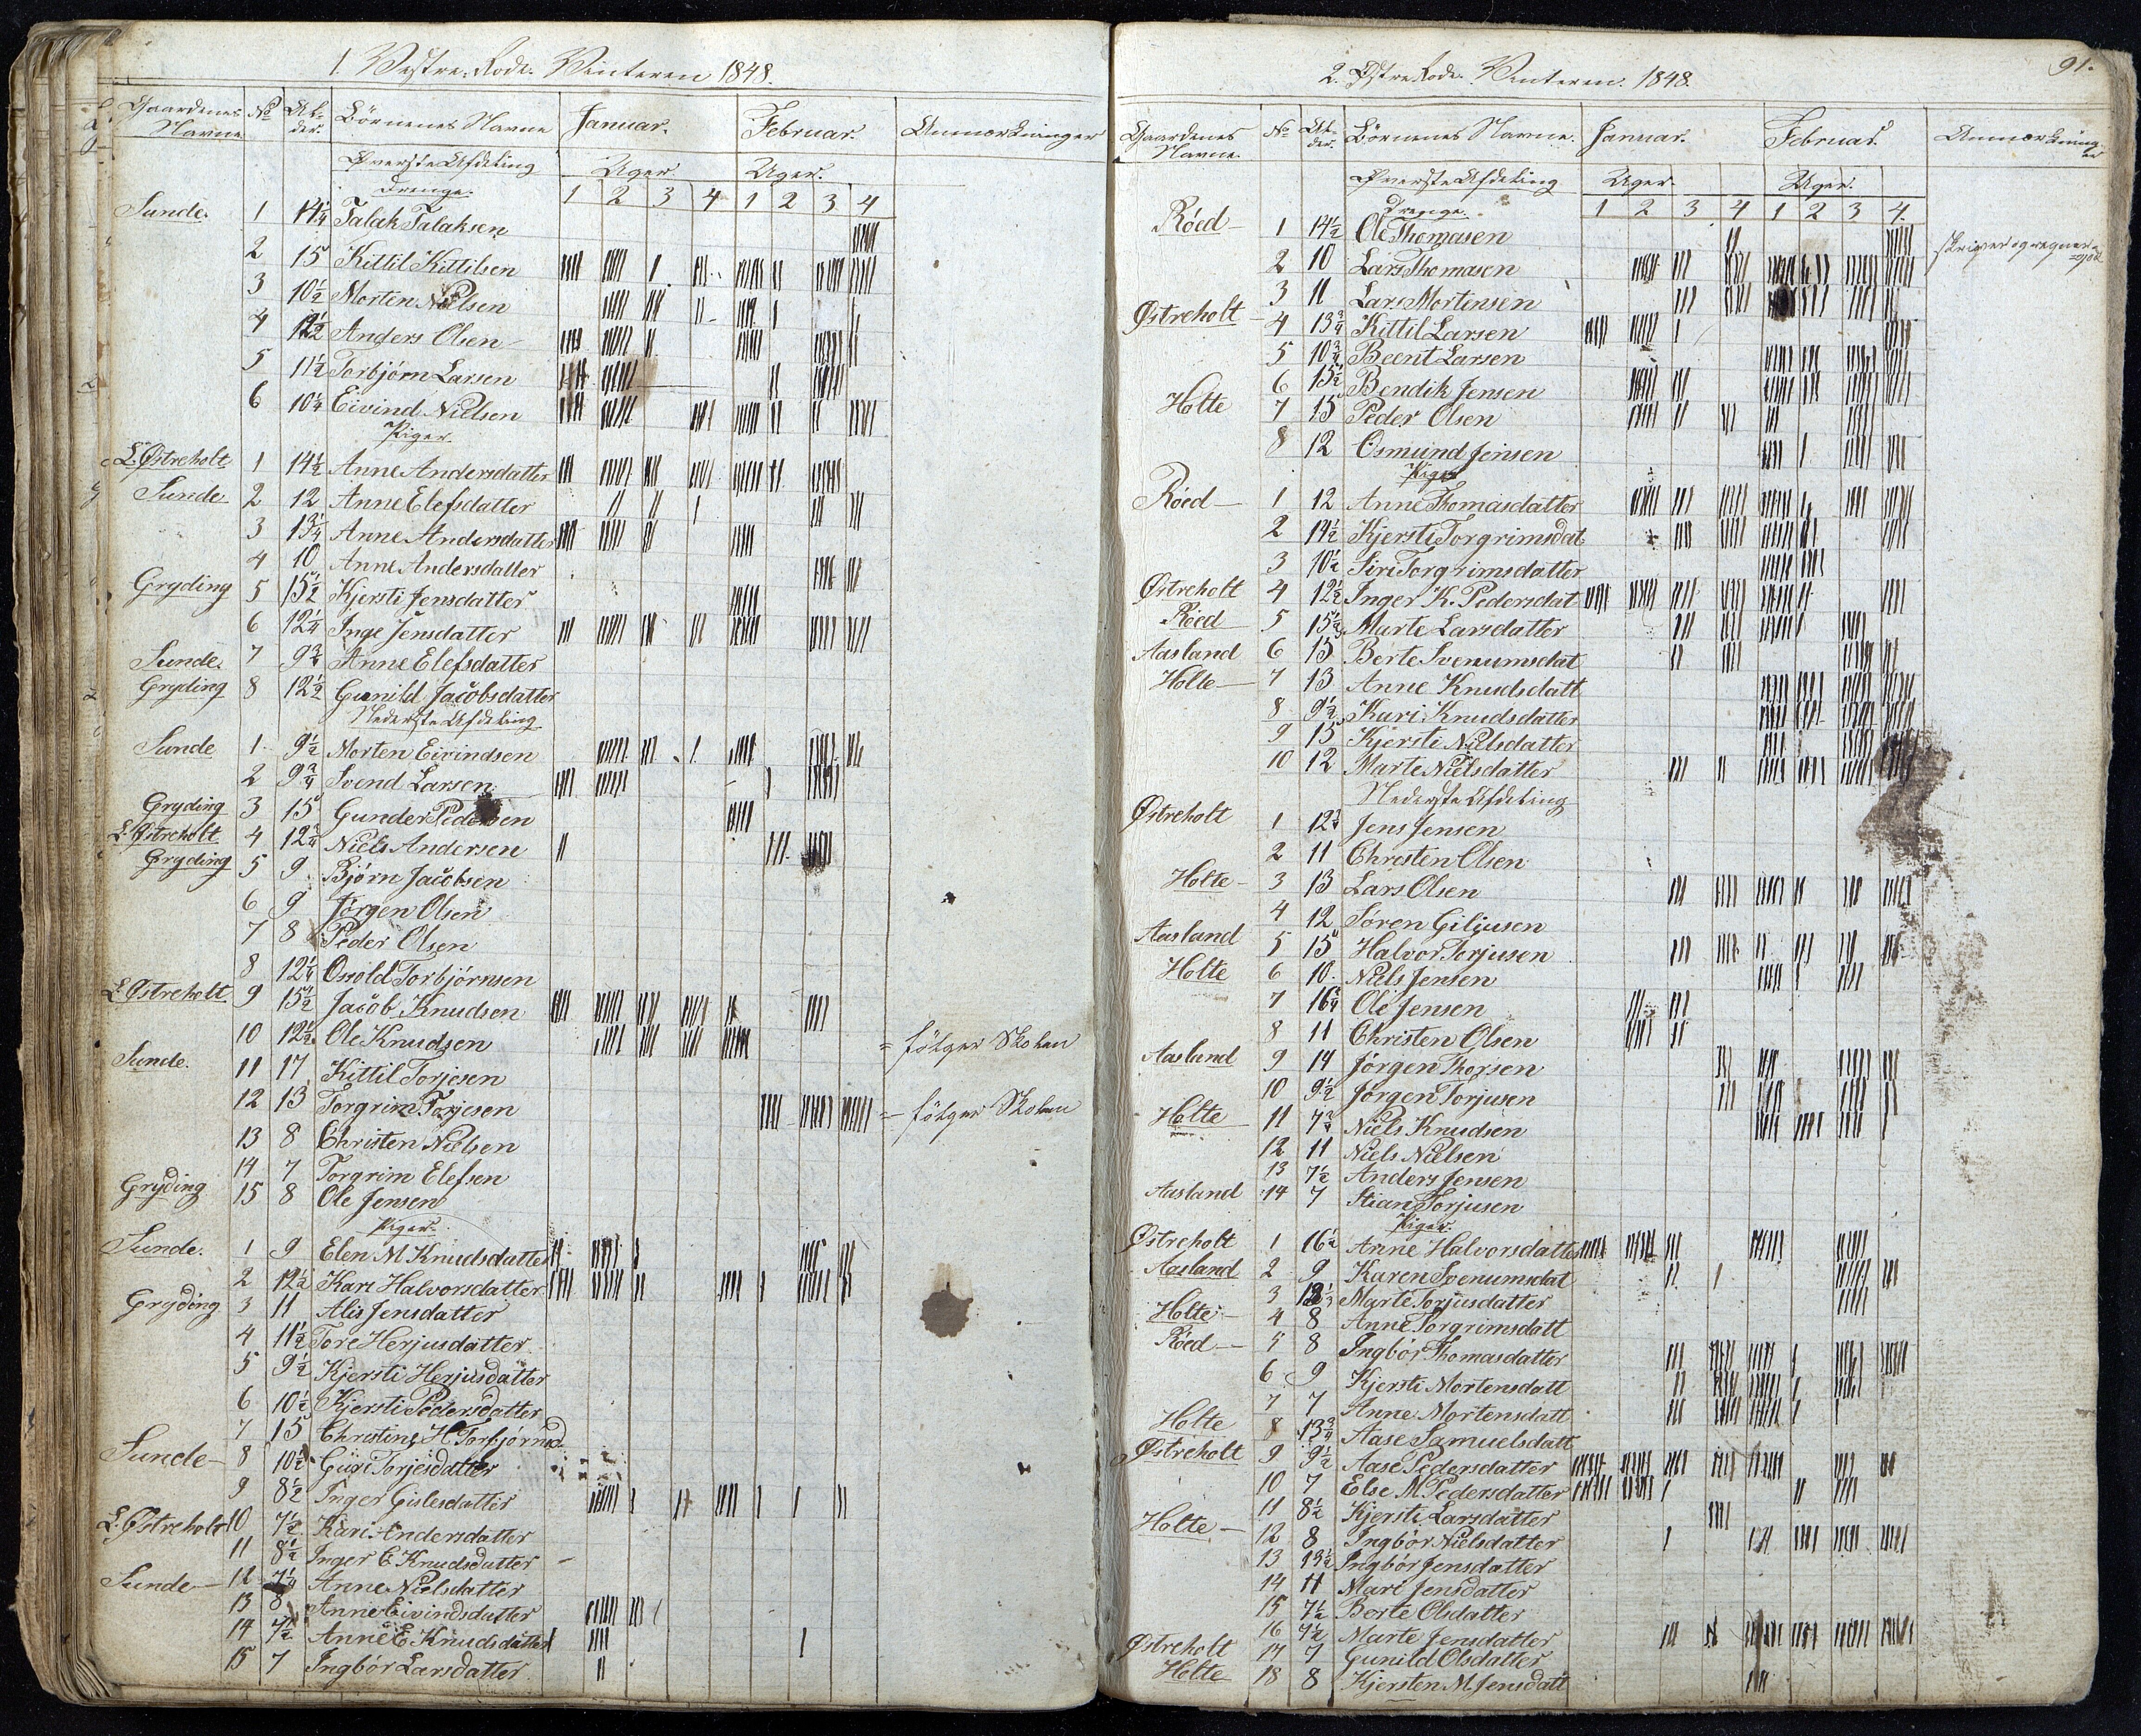 1. Vestre Rode. Vinteren 1848.
Gaardenes Navne № Al-der. Börnenes Navne Januar. Februar. Anmærkninger
Øverste Afdeling Uger. Uger.
Drenge. 1 2 3 4 1 2 3 4
Sunde. 1 14¼ Talak Talaksen
2 15 Kittil Kittilsen
3 10½ Morten Nielsen
4 12½ Anders Olsen
5 11½ Torbjørn Larsen
6 10¼ Eivind Nielsen
Piger
L. Østreholt 1 14½ Anne Andersdatter
Sunde 2 12 Anne Elefsdatter
3 13¼ Anne Andersdatter
4 10 Anne Andersdatter
Gryding 5 15½ Kjersti Jensdatter
6 12¼ Inge Jensdatter
Sunde. 7 9¾ Anne Elefsdatter
Gryding 8 12½ Gunild Jacobsdatter
Nederste Afdeling
Sunde 1 9½ Morten Eivindsen
2 9¾ Svend Larsen
Gryding 3 15 Gunder Pedersen
L. Østreholt 4 12¾ Niels Andersen
Gryding 5 9 Bjørn Jacobsen
6 9 Jørgen Olsen
7 8 Peder Olsen
8 12¼ Osold Torbjörnsen
L. Østreholt 9 15½ Jacob Knudsen
10 12½ Ole Knudsen = fölger Skolen
Sunde. 11 17 Kittil Torjesen
12 13 Torgrim Torjesen = fölger Skolen
13 8 Christen Nielsen
14 7 Torgrim Elefsen
Gryding 15 8 Ole Jensen
Piger.
Sunde. 1 9 Elen M Knudsdatter
2 12½ Kari Halvorsdatter
Gryding 3 11 Alis Jensdatter
4 11½ Tore Herjusdatter
5 9½ Kjersti Herjusdatter
6 10½ Kjersti Pedersdatter
7 15 Christine H. Torbjörnsd.
Sunde 8 10½ Guri Torjesdatter
9 8½ Inger Gislesdatter
L. Østreholt 10 7½ Kari Andersdatter
11 8½ Inger E Knudsdatter
Sunde 12 7¼ Anne Nielsdatter
13 8 Anne Eivindsdatter
14 7½ Anne E Knudsdatter
15 7 Ingbör Larsdatter
91.
2. Østre Rode. Vinteren. 1848.
Gaardenes Navne. № Al-der. Börnenes Navne. Januar. Februar. Anmærkninger
Øverste Afdeling Uger. Uger.
Drenge. 1 2 3 4 1 2 3 4.
Röed 1 14½ Ole Thomasen skriver og regner = godt
2 10 Lars Thomasen
3 11 Lars Mortensen
Østreholt 4 13¾ Kittil Larsen
5 10¾ Beent Larsen
6 15½ Bendik Jensen
Holte 7 15 Peder Olsen
8 12 Osmund Jensen
Piger
Röed 1 12 Anne Thomasdatter
2 14½ Kjersti Torgrimsdat
3 10½ Siri Torgrimsdatter
Østreholt 4 12½ Inger K. Pedersdat
Röed 5 15½ Marte Larsdatter
Aasland 6 15 Berte Svenumsdat
Holte 7 13 Anne Knudsdatt
8 9½ Kari Knudsdatter
9 15 Kjersti Nielsdatter
10 12 Marte Nielsdatter
Nederste Afdeling
Østreholt 1 12¾ Jens Jensen
2 11 Christen Olsen
Holte 3 13 Lars Olsen
4 12 Sören Giliusen
Aasland 5 15 Halvor Torjusen
Holte 6 10. Niels Jensen
7 16¾ Ole Jensen
8 11 Christen Olsen
Aasland 9 14 Jörgen Thorsen
10 9½ Jörgen Torjusen
Holte 11 7¾ Niels Knudsen
12 11 Niels Nielsen
13 7½ Anders Jensen
Aasland 14 7 Stian Torjusen
Piger.
Østreholt 1 16½ Anne Halvorsdatter
Aasland 2 9 Karen Svenumsdat
3 Marte Torjusdatter
Holte 4 8 Anne Torgrimsdatt
Röed 5 8 Ingbör Thomasdatter
6 9 Kjersti Mortensdatt
7 7 Anne Mortensdatt
Holte 8 13¾ Aase Samuelsdatt
Østreholt 9 9½ Aase Pedersdatter
10 7 Else M. Pedersdatter
11 8½ Kjersti Larsdatter
Holte 12 8 Ingbör Nielsdatter
13 13½ Ingbör Jensdatter
14 11 Mari Jensdatter
15 7½ Berte Olsdatter
16 7½ Marte Jensdatter
Østreholt 17 7 Gunild Olsdatter
Holte 18 8 Kjersten M. Jensdatt